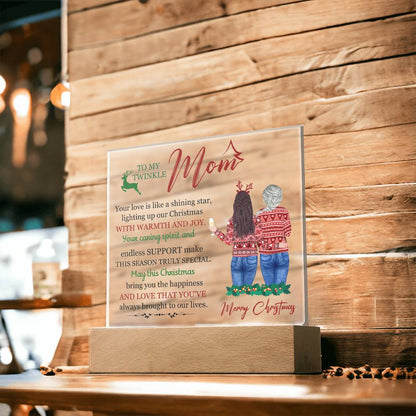 TO MY
TWINKLE
Mom
Your love is like a shining star,
lighting up our Christmas
WITH WARMTH AND JOY.
Your caring spirit and
endless SUPPORT make
THIS SEASON TRULY SPECIAL.
May this Christmas
bring you the happiness
AND LOVE THAT YOU'VE
always brought to our lives.
Merry Christmas